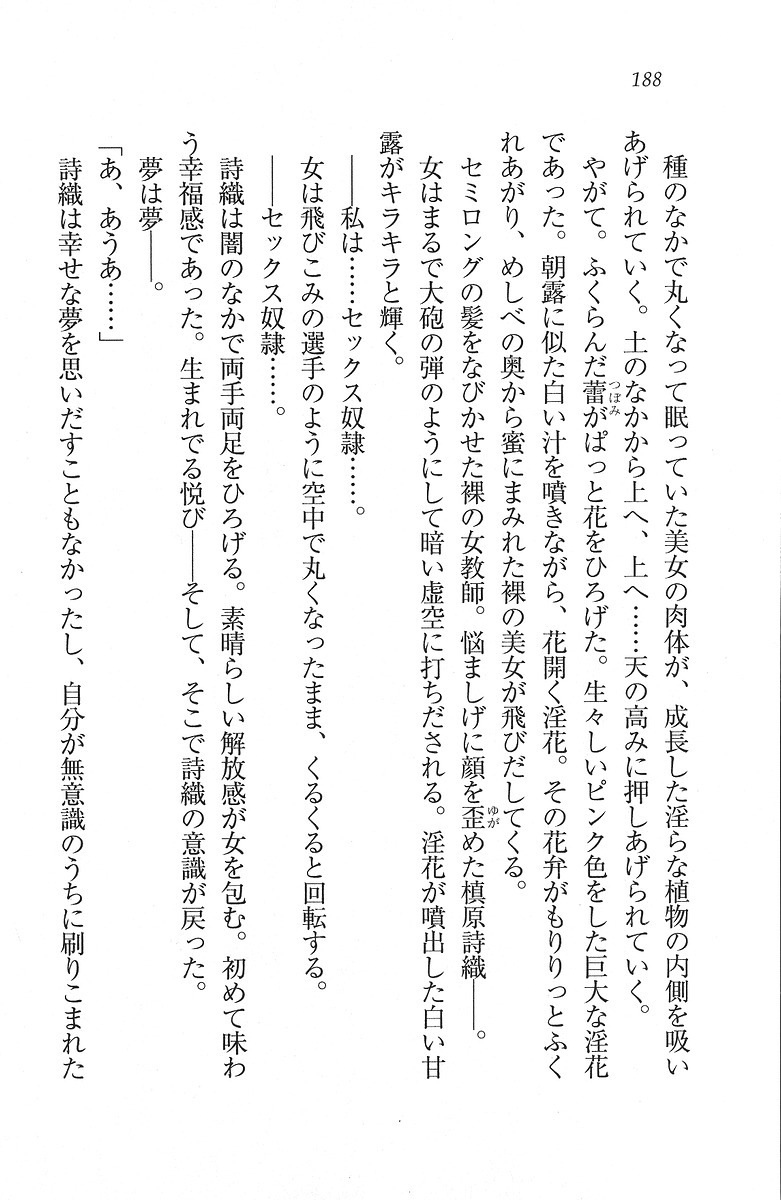 188
種のなかで丸くなって眠っていた美女の肉体が、成長した淫らな植物の内側を吸い
あげられていく。土のなかから上へ、上へ……天の高みに押しあげられていく。
やがて。ふくらんだ蕾がぱっと花をひろげた。生々しいピンク色をした巨大な淫花
つぼみ
であった。朝露に似た白い汁を噴きながら、花開く淫花。その花弁がもりりっとふく
れあがり、めしべの奥から蜜にまみれた裸の美女が飛びだしてくる。
セミロングの髪をなびかせた裸の女教師。悩ましげに顔を歪めた槙原詩織――。
ゆが
女はまるで大砲の弾のようにして暗い虚空に打ちだされる。淫花が噴出した白い甘
露がキラキラと輝く。
――私は……セックス奴隷……。
女は飛びこみの選手のように空中で丸くなったまま、くるくると回転する。
――セックス奴隷……。
詩織は闇のなかで両手両足をひろげる。素晴らしい解放感が女を包む。初めて味わ
う幸福感であった。生まれでる悦び――そして、そこで詩織の意識が戻った。
夢は夢――。
「あ、あうあ……」
詩織は幸せな夢を思いだすこともなかったし、自分が無意識のうちに刷りこまれた